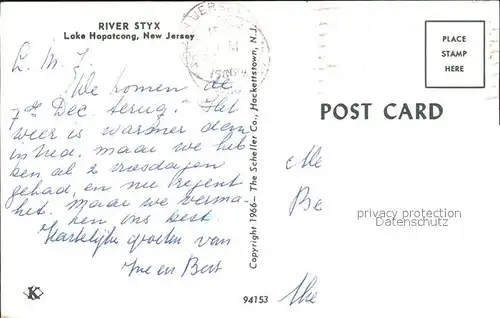 RIVER STYX
Lake Hopatcong, New Jersey
L. M. J.
We komen de
7de Dec. terug. Het
weer is warmer dan
in Ned. maar we heb-
ben al 2 vriesdagen
gehad, en nu regent
het. Maar we verma-
ken ons best.
Hartelijke groeten van
en Bert
K
94153
Copyright 1966 — The Scheller Co., Hackettstown, N.J.
PLACE
STAMP
HERE
POST CARD
privacy protection
Datenschutz